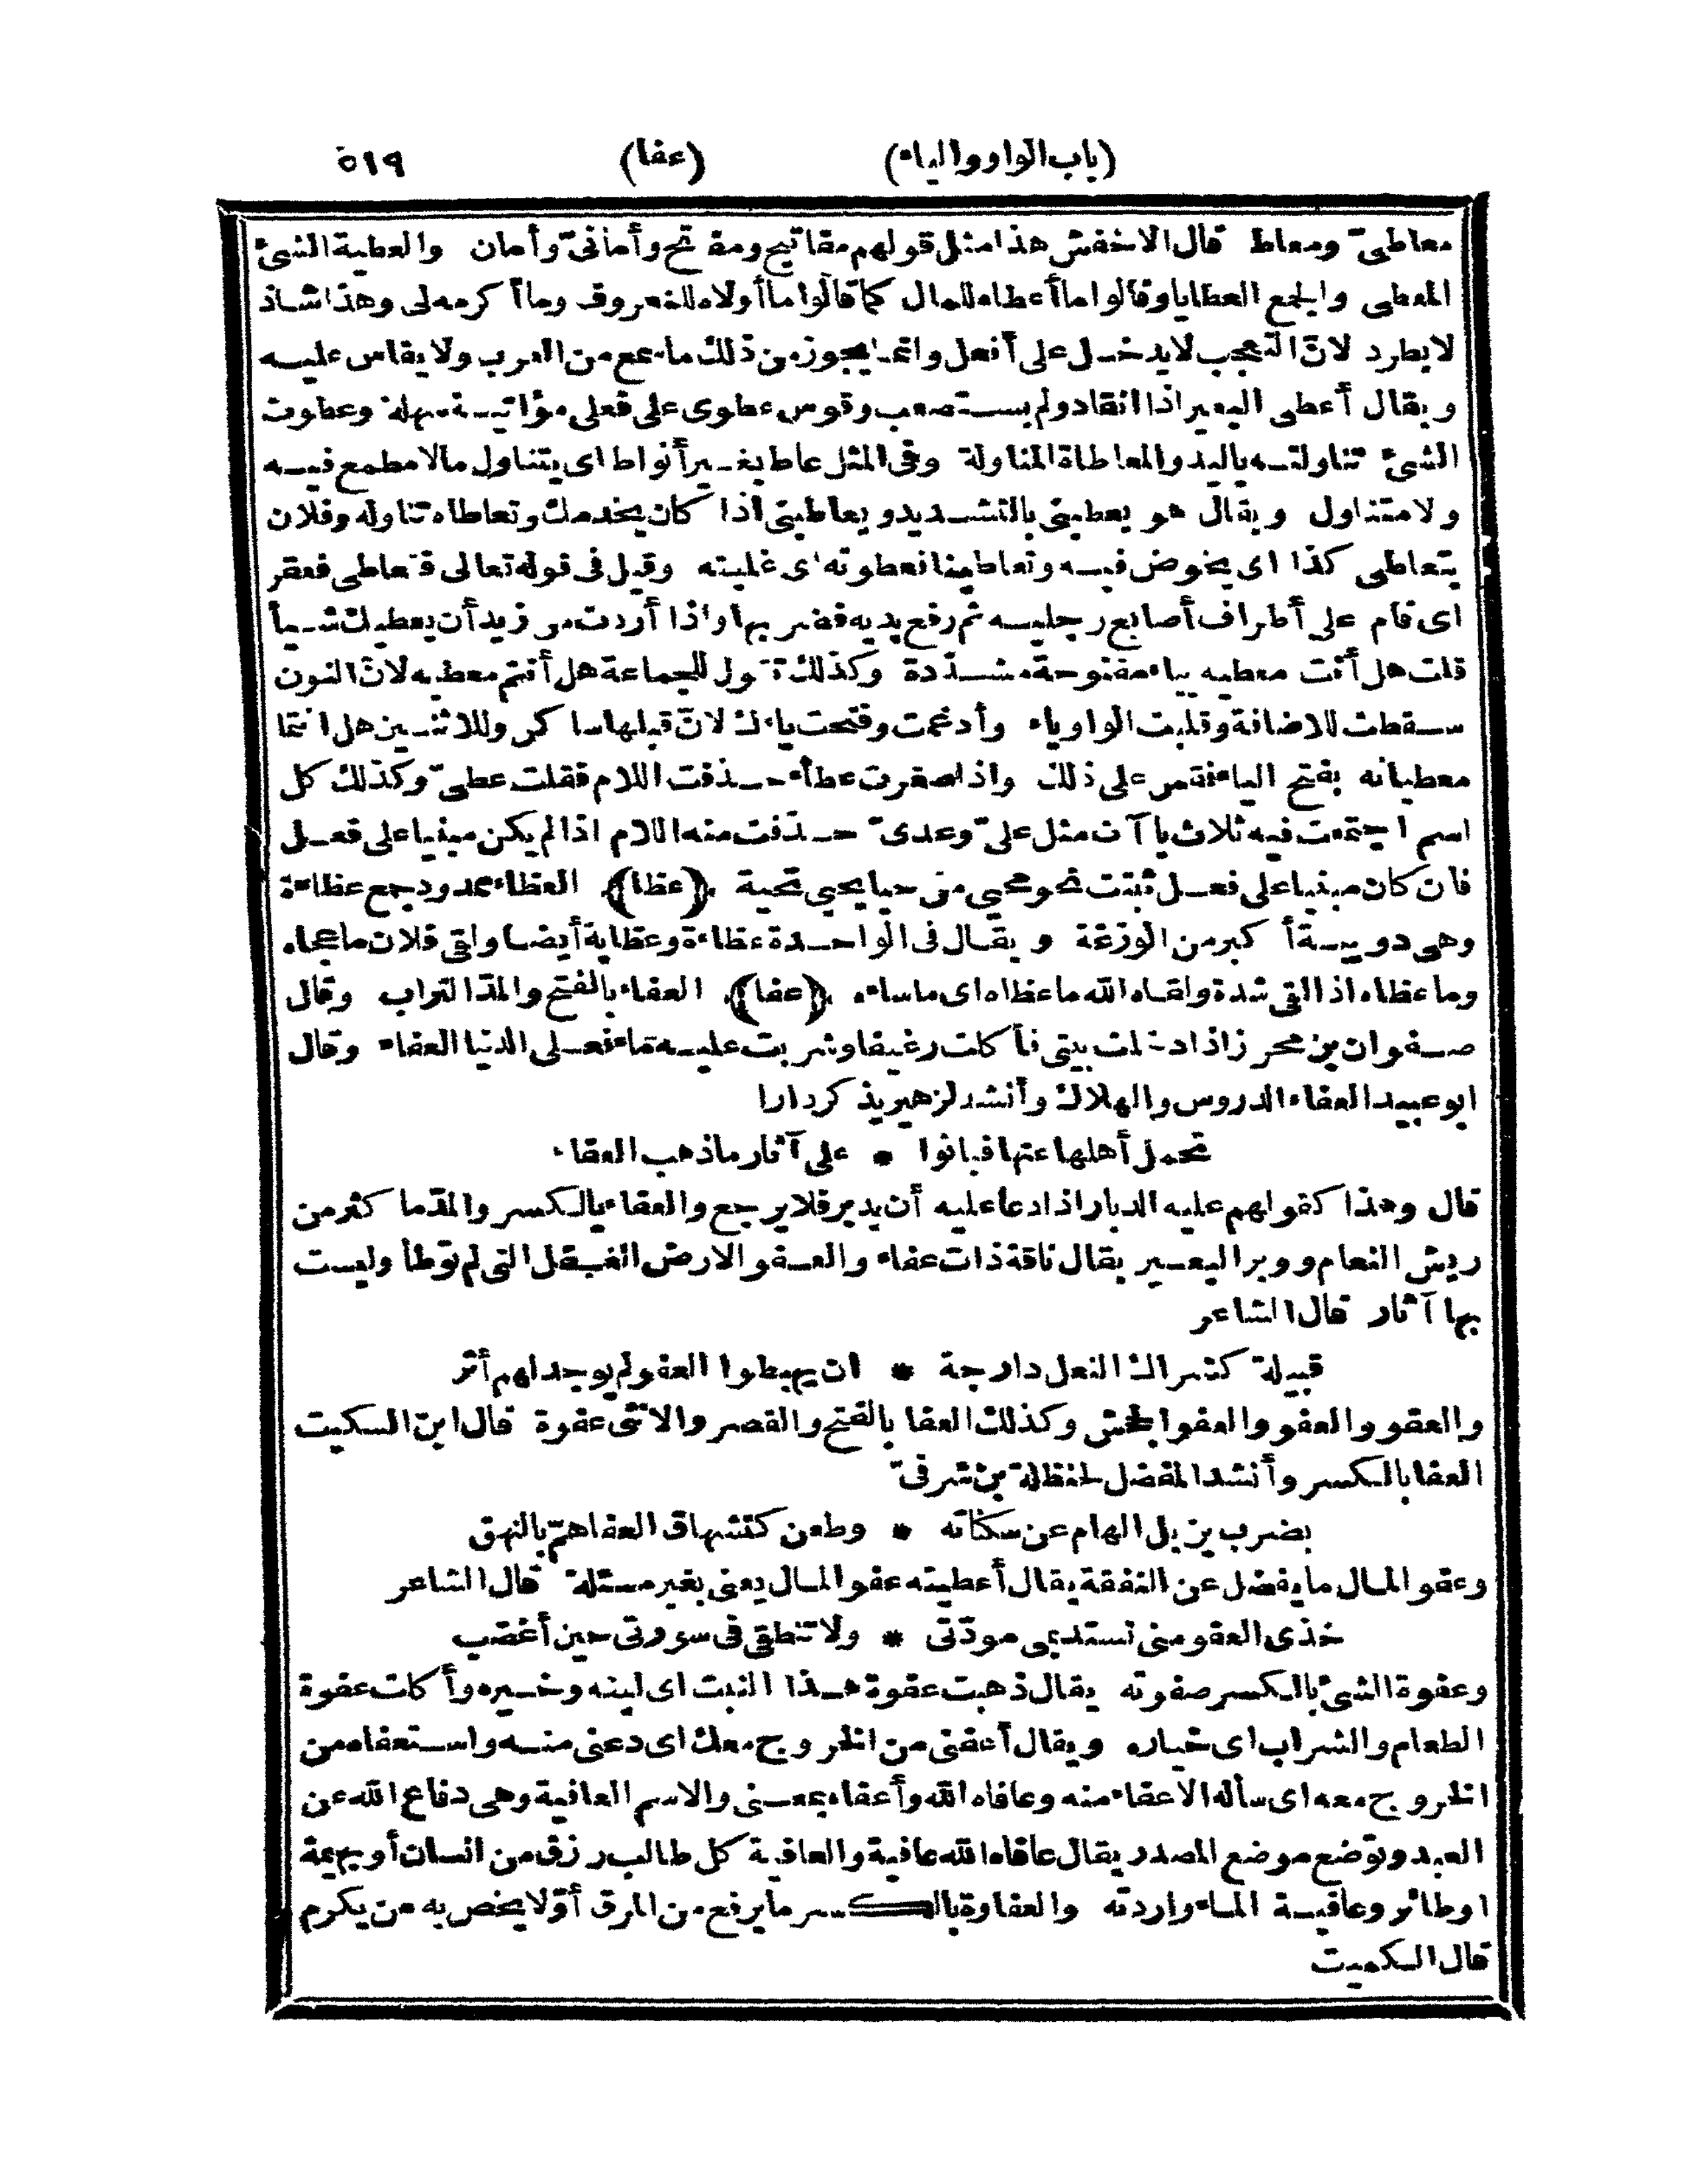 (باب الواو والياء) (عفا) ٥١٩
معاطىّ ومعاط قال الاخفش هذا مثل قولهم مفاتيح ومفاتح وأمانىّ وأمان والعطية الشئ
المعطى والجمع العطايا وقالوا ما أعطاه للمال كما قالوا ما أولاه للمعروف وما أكرمه لى وهذا شاذ
لا يطرد لانّ التعجب لا يدخل على أفعل وانما يجوز من ذلك ما سمع من العرب ولا يقاس عليه
ويقال أعطى البعير اذا انقاد ولم يستصعب وقوس عطوى على فعلى مؤاتية سهلة وعطوت
الشئ تناولته باليد والمعاطاة المناولة وفى المثل عاط بغير أنواط اى يتناول مالا مطمع فيه
ولا متناول ويقال هو يعطينى بالتشديد ويعاطينى اذا كان يخدمك وتعاطاه تناوله وفلان
يتعاطى كذا اى يخوض فيه وتعاطينا فعطوته اى غلبته وقيل فى قوله تعالى فتعاطى فعقر
اى قام على أطراف أصابع رجليه ثم رفع يديه فضربها واذا أردت من زيد أن يعطيك شيأ
قلت هل أنت معطيه بياء مفتوحة مشدّدة وكذلك تقول للجماعة هل أنتم معطيه لانّ النون
سقطت للاضافة وقلبت الواو ياء وأدغمت وفتحت ياءك لانّ قبلها ساكن وللاثنين هل انتما
معطيانه بفتح الياء فقس على ذلك واذا صغرت عطاء حذفت اللام فقلت عطىّ وكذلك كل
اسم اجتمعت فيه ثلاث يا آت مثل علىّ وعدىّ حذفت منه اللام اذا لم يكن مبنيا على فعل
فان كان مبنيا على فعل ثبتت نحو محيى من حيا يحيى تحية ﴿عظا﴾ العظاء ممدود جمع عظاءة
وهى دويبة أكبر من الوزغة ويقال فى الواحدة عظاءة وعظاية أيضا ولقى فلان ما عجاه
وما عظاه اذا لقى شدة ولقاه الله ما عظاه اى ما ساءه ﴿عفا﴾ العفاء بالفتح والمدّ التراب وقال
صفوان بن محرز اذا دخلت بيتى فأكلت رغيفا وشربت عليه ماء فعلى الدنيا العفاء وقال
ابو عبيد العفاء الدروس والهلاك وأنشد لزهير يذكر دارا
تحمل أهلها عنها فبانوا * على آثار ما ذهب العفاء
قال وهذا كقولهم عليه الدبار اذا دعا عليه أن يدبر فلا يرجع والعفاء بالكسر والمدّ ما كثر من
ريش النعام ووبر البعير يقال ناقة ذات عفاء والعفو الارض الغفل التى لم توطأ وليست
بها آثار قال الشاعر
قبيلة كشراك النعل دارجة * ان يهبطوا العفو لم يوجد لهم أثر
والعفو والعفو والعفو الجحش وكذلك العفا بالفتح والقصر والانثى عفوة قال ابن السكيت
العفا بالكسر وأنشد المفضل لحنظلة بن شرقىّ
بضرب يزيل الهام عن سكناته * وطعن كتشهاق العفا همّ بالنهق
وعفو المال ما يفضل عن النفقة يقال أعطيته عفو المال يعنى بغير مسئلة قال الشاعر
خذى العفو منى تستديمى مودّتى * ولا تنطقى فى سورتى حين أغضب
وعفوة الشئ بالكسر صفوته يقال ذهبت عفوة هذا النبت اى لينه وخيره وأكلت عفوة
الطعام والشراب اى خياره ويقال أعفنى من الخروج معك اى دعنى منه واستعفاه من
الخروج معه اى سأله الاعفاء منه وعافاه الله وأعفاه بمعنى والاسم العافية وهى دفاع الله عن
العبد وتوضع موضع المصدر يقال عافاه الله عافية والعافية كل طالب رزق من انسان أو بهيمة
او طائر وعافية الماء واردته والعفاوة بالكسر ما يرفع من المرق أوّلا يخص به من يكرم
قال الكميت